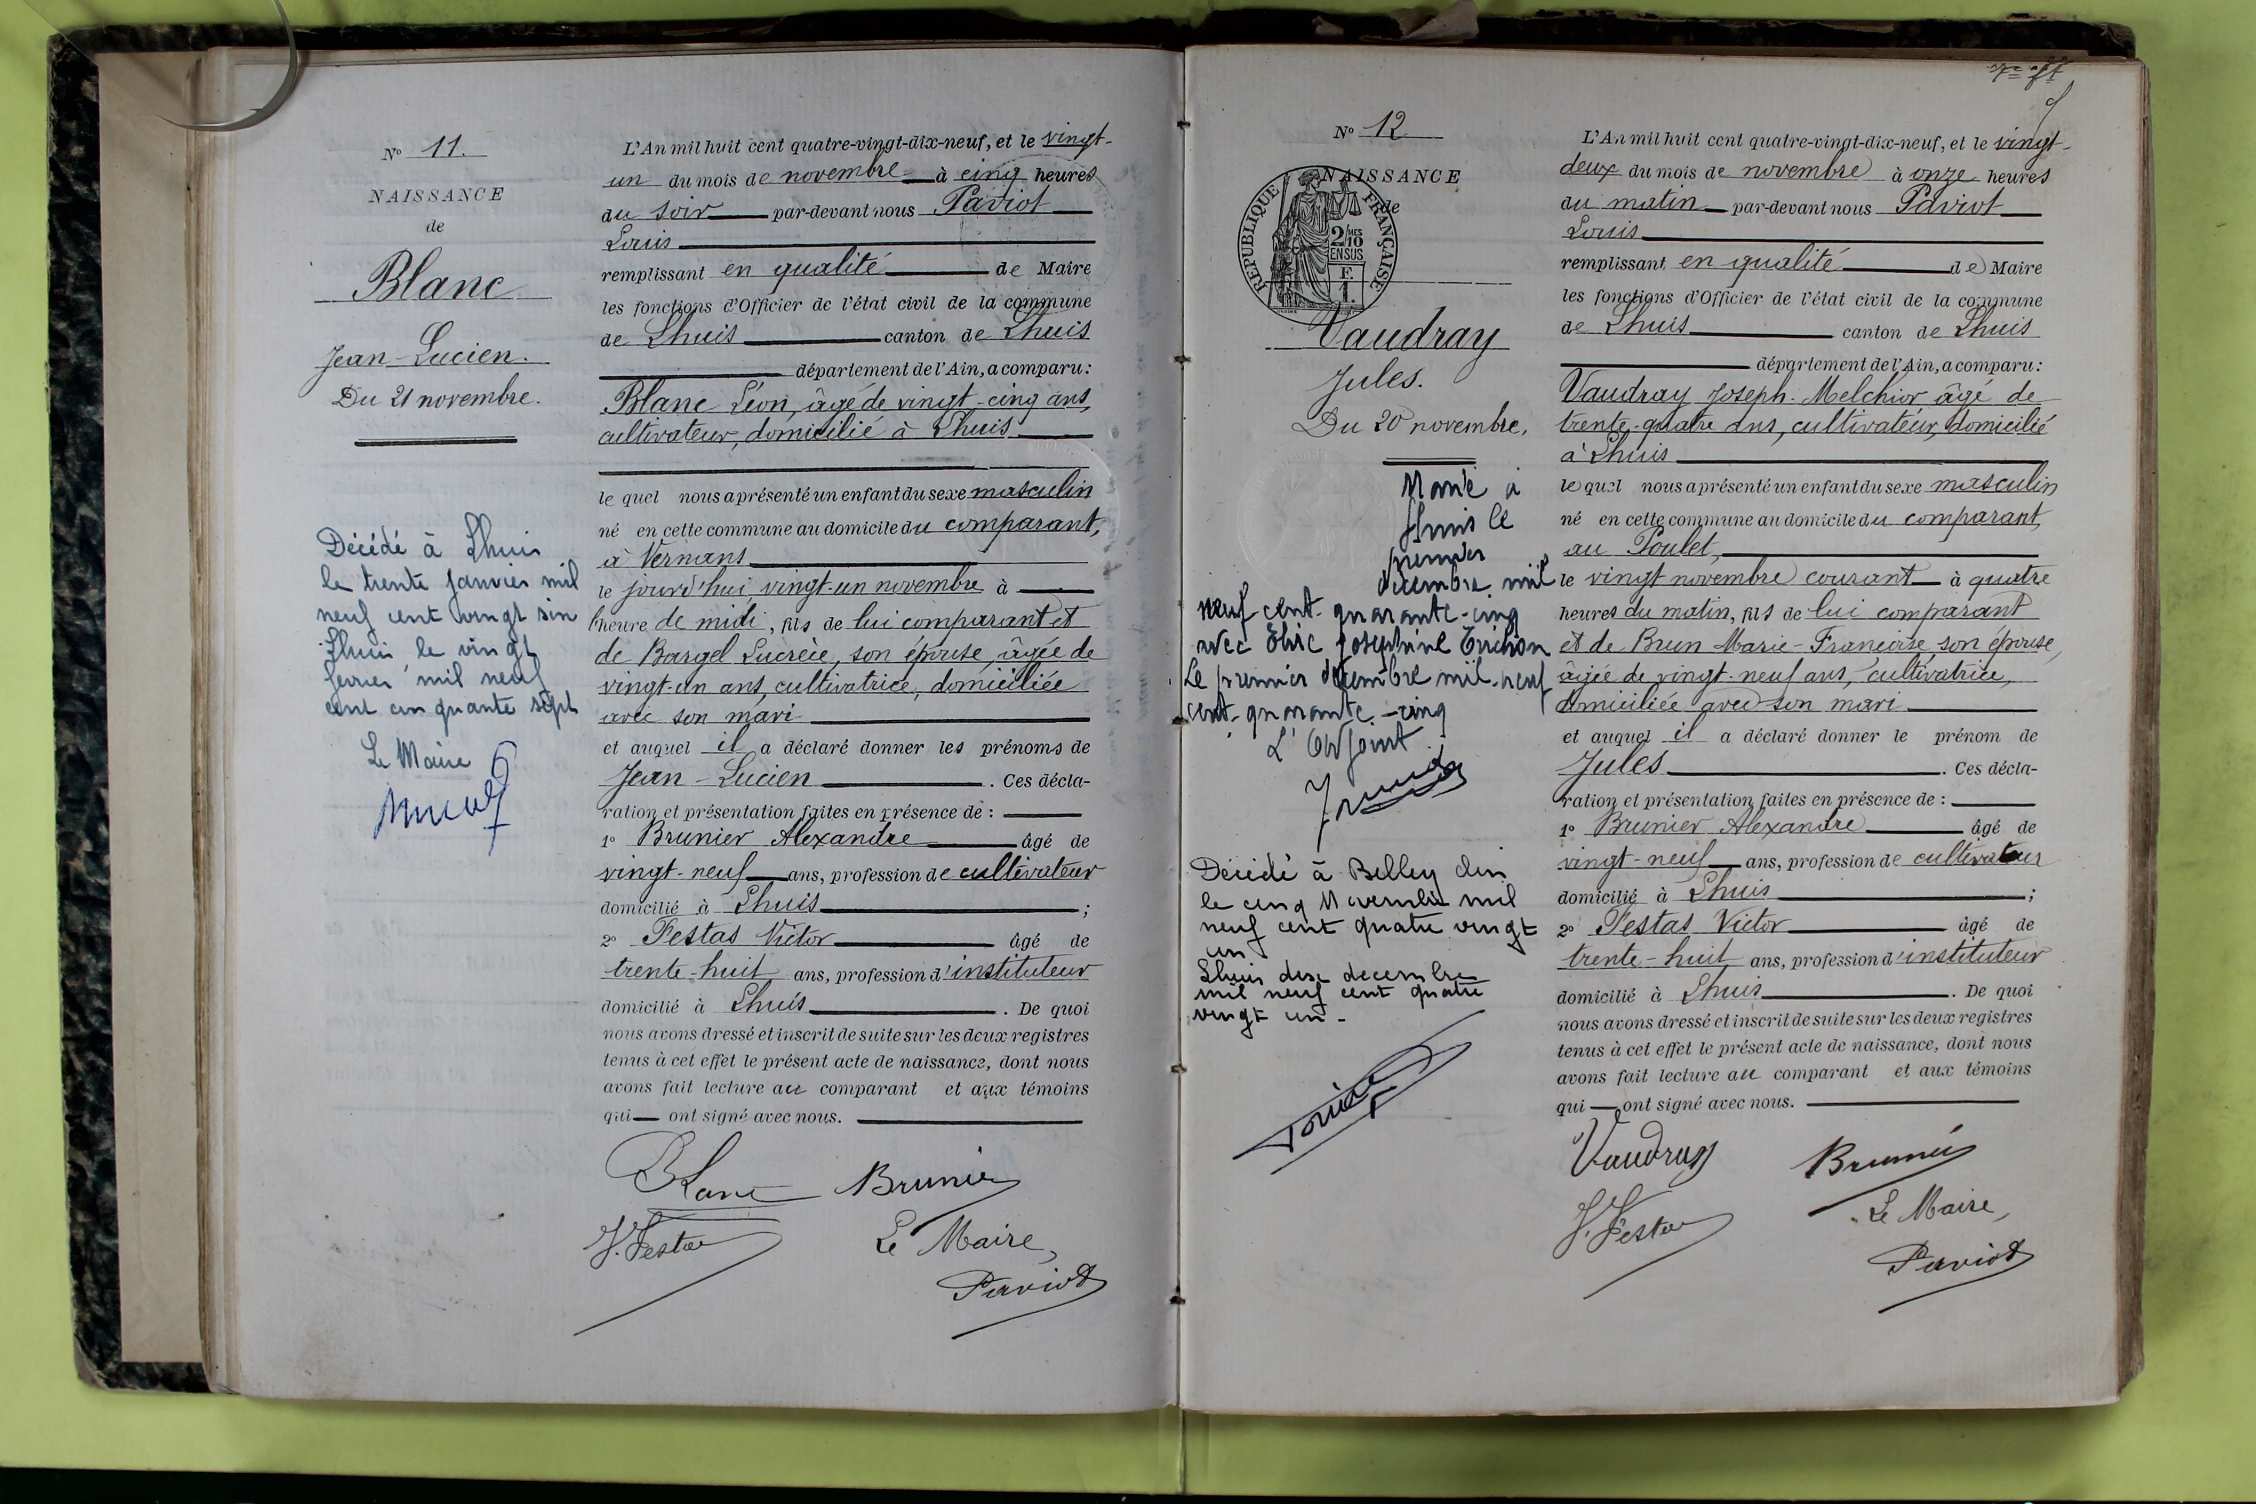 N° 11.
NAISSANCE
de
Blanc
Jean-Lucien.
Du 21 novembre.
Décédé à Lhuis
le trente janvier mil
neuf cent vingt six
Lhuis le vingt
février mil neuf
cent cinquante sept
Le Maire
L'An mil huit cent quatre-vingt-dix-neuf, et le vingt-
un du mois de novembre à cinq heures
du soir par-devant nous Paviot
Louis
remplissant en qualité de Maire
les fonctions d'Officier de l'état civil de la commune
de Lhuis canton de Lhuis
département de l'Ain, a comparu :
Blanc Léon, âgé de vingt-cinq ans,
cultivateur, domicilié à Lhuis
le quel nous a présenté un enfant du sexe masculin
né en cette commune au domicile du comparant,
à Vernans
le jourd'hui, vingt-un novembre à
heure de midi, fils de lui comparant et
de Bargel Lucrèce, son épouse, âgée de
vingt-un ans, cultivatrice, domiciliée
avec son mari
et auquel il a déclaré donner les prénoms de
Jean-Lucien . Ces décla-
ration et présentation faites en présence de :
1° Brunier Alexandre âgé de
vingt-neuf ans, profession de cultivateur
domicilié à Lhuis ;
2° Festas Victor âgé de
trente-huit ans, profession d'instituteur
domicilié à Lhuis . De quoi
nous avons dressé et inscrit de suite sur les deux registres
tenus à cet effet le présent acte de naissance, dont nous
avons fait lecture au comparant et aux témoins
qui ont signé avec nous.
Blanc Brunier
V. Festas Le Maire,
Paviot
N° 12
NAISSANCE
de
REPUBLIQUE FRANÇAISE
2/10 MES
EN SUS
F.
1.
Vaudray
Jules.
Du 20 novembre.
Marié à
Lhuis le
premier
décembre mil
neuf cent-quarante-cinq
avec Elise Joséphine
Le premier décembre mil-neuf
cent-quarante-cinq
L'Adjoint
Décédé à Belley Ain
le cinq Novembre mil
neuf cent quatre vingt
un
Lhuis dix decembre
mil neuf cent quatre
vingt un -
L'An mil huit cent quatre-vingt-dix-neuf, et le vingt-
deux du mois de novembre à onze heures
du matin par-devant nous Paviot
Louis
remplissant en qualité de Maire
les fonctions d'Officier de l'état civil de la commune
de Lhuis canton de Lhuis
département de l'Ain, a comparu :
Vaudray Joseph-Melchior âgé de
trente-quatre ans, cultivateur, domicilié
à Lhuis
le quel nous a présenté un enfant du sexe masculin
né en cette commune au domicile du comparant,
au Poulet,
le vingt novembre courant à quatre
heures du matin, fils de lui comparant
et de Brun Marie-Françoise son épouse,
âgée de vingt-neuf ans, cultivatrice,
domiciliée avec son mari
et auquel il a déclaré donner le prénom de
Jules . Ces décla-
ration et présentation faites en présence de :
1° Brunier Alexandre âgé de
vingt-neuf ans, profession de cultivateur
domicilié à Lhuis ;
2° Festas Victor âgé de
trente-huit ans, profession d'instituteur
domicilié à Lhuis . De quoi
nous avons dressé et inscrit de suite sur les deux registres
tenus à cet effet le présent acte de naissance, dont nous
avons fait lecture au comparant et aux témoins
qui ont signé avec nous.
Vaudray Brunier
V. Festas Le Maire,
Paviot